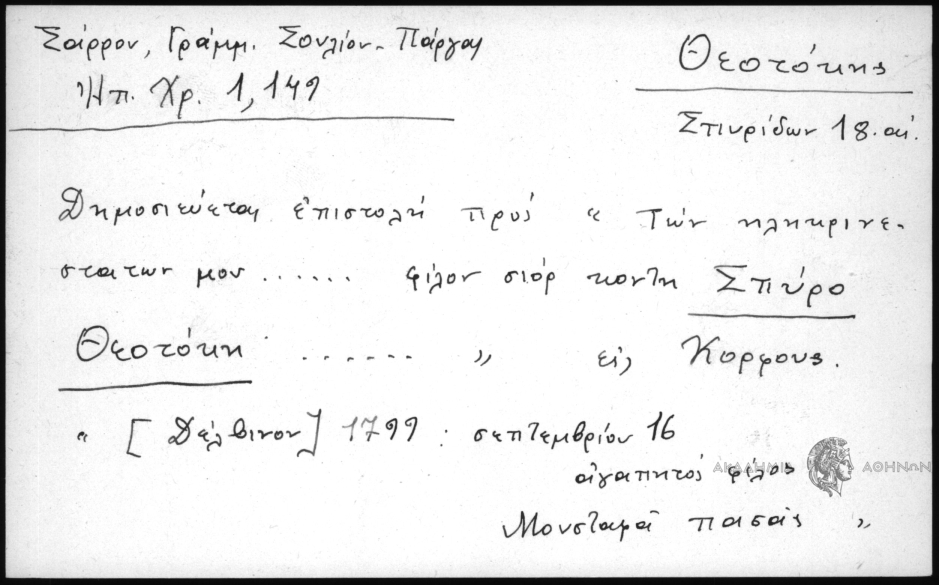 Σάρρου, Γράμμ. Σουλίου - Πάργας
Ἠπ. Χρ. 1, 149
Θεοτόκης
Σπυρίδων 18. αἰ.
Δημοσιεύεται ἐπιστολή πρός “ Τών ηληκρινε-
στατων μου ...... φίλον σιόρ κοντη Σπύρο
Θεοτόκη ....... „ εἰς Κορφους.
“ [ Δέλβινον ] 1799 : σεπτεμβρίου 16
ἀγαπητός φίλος
Μουσταφᾶ πασᾶς „
ΑΚΑΔΗΜΙΑ ΑΘΗΝΩΝ